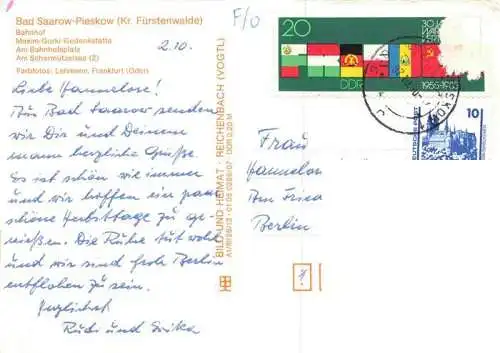 Bad Saarow-Pieskow (Kr. Fürstenwalde)
Bahnhof
Maxim-Gorki-Gedenkstätte
Am Bahnhofsplatz
Am Scharmützelsee (2)
Farbfotos: Lehmann, Frankfurt (Oder)
2.10.
Liebe Hannelore!
Aus Bad Saarow senden
wir Dir und Deinem
Mann herzliche Grüße.
Es ist schön wie immer
und wir hoffen ein paar
schöne Herbsttage zu ge-
nießen. Die Ruhe tut wohl
und wir sind froh Berlin
entflohen zu sein.
Herzlichst
Rudi und Erika
BILD UND HEIMAT · REICHENBACH (VOGTL)
DDR 0,20 M
F/O
20
30
DDR
1955-1985
10
DEUTSCHE POST
Frau
Hannelore
Berlin